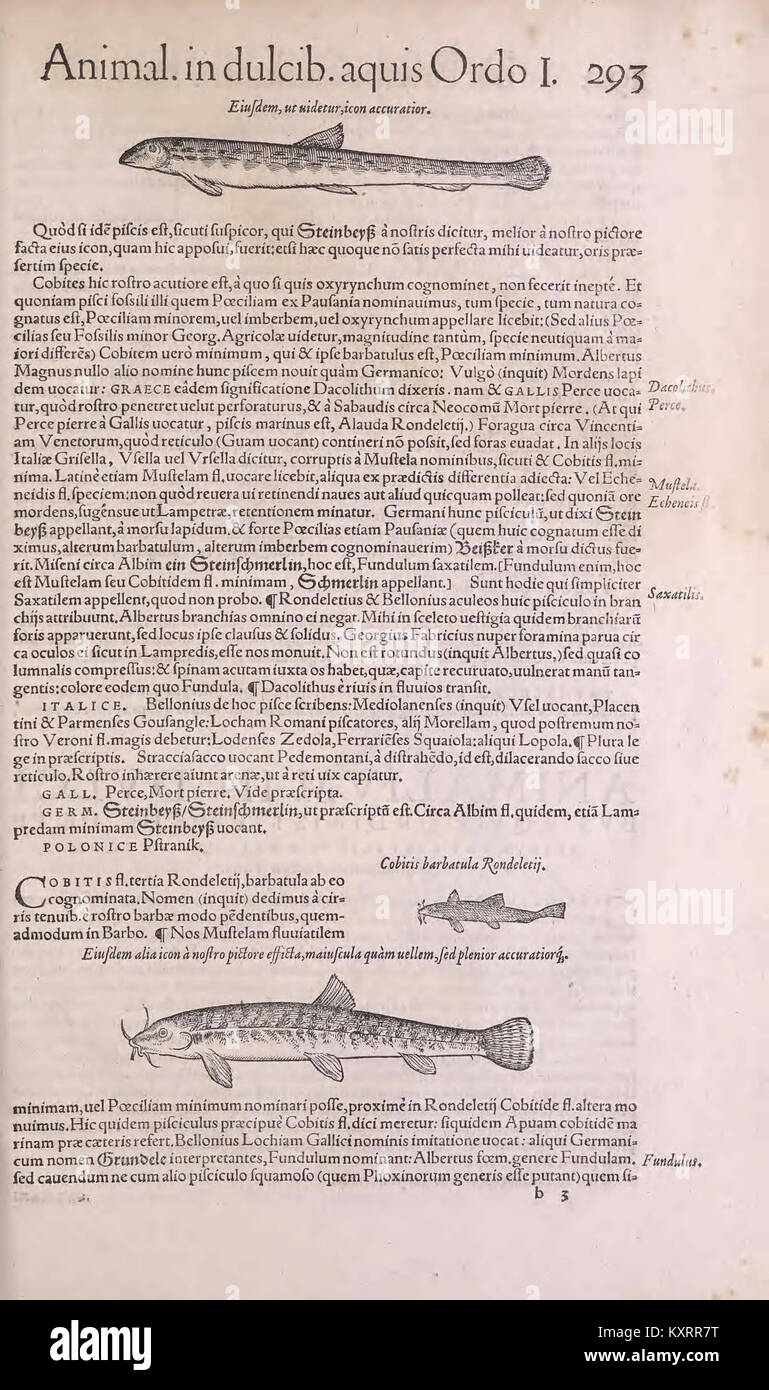 Animal. in dulcib. aquis Ordo I. 293
Eiuſdem, ut uidetur, icon accuratior.
Quòd ſi idẽ piſcis eſt, ſicuti ſuſpicor, qui Steinbeyß à noſtris dicitur, melior à noſtro pictore
facta eius icon, quam hic appoſui, fuerit: etſi hæc quoque nõ ſatis perfecta mihi uideatur, oris præ⸗
ſertim ſpecie.
Cobites hic roſtro acutiore eſt, à quo ſi quis oxyrynchum cognominet, non fecerit ineptè. Et
quoniam piſci foſſili illi quem Pœciliam ex Pauſania nominauimus, tum ſpecie, tum natura co⸗
gnatus eſt, Pœciliam minorem, uel imberbem, uel oxyrynchum appellare licebit: (Sed alius Pœ⸗
cilias ſeu Foſsilis minor Georg. Agricolæ uidetur, magnitudine tantùm, ſpecie neutiquam à ma⸗
iori differẽs) Cobitem uerò minimum, qui & ipſe barbatulus eſt, Pœciliam minimum. Albertus
Magnus nullo alio nomine hunc piſcem nouit quàm Germanico: Vulgò (inquit) Mordens lapi
dem uocatur: GRAECE eâdem ſignificatione Dacolithum dixeris. nam & GALLIS Perce uoca⸗
Perce.
tur, quòd roſtro penetret uelut perforaturus, & à Sabaudis circa Neocomũ Mort pierre. (At qui
Perce pierre à Gallis uocatur, piſcis marinus eſt, Alauda Rondeletij.) Foragua circa Vincenti⸗
am Venetorum, quòd reticulo (Guam uocant) contineri nõ poſsit, ſed foras euadat. In alijs locis
Italiæ Griſella, Vſella uel Vrſella dicitur, corruptis à Muſtela nominibus, ſicuti & Cobitis fl. mi⸗
nima. Latinè etiam Muſtelam fl. uocare licebit, aliqua ex prædictis differentia adiecta: Vel Eche⸗
Muſtela.
neidis fl. ſpeciem: non quòd reuera ui retinendi naues aut aliud quicquam polleat: ſed quoniã ore
Echeneis
mordens, ſugẽnsue ut Lampetræ, retentionem minatur. Germani hunc piſciculũ, ut dixi Stein
beyß appellant, à morſu lapidum, & forte Pœcilias etiam Pauſaniæ (quem huic cognatum eſſe di
ximus, alterum barbatulum, alterum imberbem cognominauerim) Beißker à morſu dictus fue⸗
rit. Miſeni circa Albim ein Steinſchmerlin, hoc eſt, Fundulum ſaxatilem. [Fundulum enim, hoc
eſt Muſtelam ſeu Cobitidem fl. minimam, Schmerlin appellant.] Sunt hodie qui ſimpliciter
Saxatilem appellent, quod non probo. ¶ Rondeletius & Bellonius aculeos huic piſciculo in bran
Saxatilis.
chijs attribuunt, Albertus branchias omnino ei negat. Mihi in ſceleto ueſtigia quidem branchiarũ
foris apparuerunt, ſed locus ipſe clauſus & ſolidus. Georgius Fabricius nuper foramina parua cir
ca oculos ei ſicut in Lampredis, eſſe nos monuit. Non eſt rotundus (inquit Albertus,) ſed quaſi co
lumnalis compreſſus: & ſpinam acutam iuxta os habet, quæ, capite recuruato, uulnerat manũ tan⸗
gentis: colore eodem quo Fundula. ¶ Dacolithus è riuis in fluuios tranſit.
ITALICE. Bellonius de hoc piſce ſcribens: Mediolanenſes (inquit) Vſel uocant, Placen
tini & Parmenſes Gouſangle: Locham Romani piſcatores, alij Morellam, quod poſtremum no⸗
ſtro Veroni fl. magis debetur: Lodenſes Zedola, Ferrariẽſes Squaiola: aliqui Lopola. ¶ Plura le
ge in præſcriptis. Stracciaſacco uocant Pedemontani, à diſtrahẽdo, id eſt, dilacerando ſacco ſiue
reticulo. Roſtro inhærere aiunt arenæ, ut à reti uix capiatur.
GALL. Perce, Mort pierre. Vide præſcripta.
GERM. Steinbeyß/Steinſchmerlin, ut præſcriptũ eſt. Circa Albim fl. quidem, etiã Lam⸗
predam minimam Steinbeyß uocant.
POLONICE Pſtranik.
Cobitis barbatula Rondeletij.
COBITIS fl. tertia Rondeletij, barbatula ab eo
cognominata. Nomen (inquit) dedimus à cir⸗
ris tenuib. è roſtro barbæ modo pẽdentibus, quem⸗
admodum in Barbo. ¶ Nos Muſtelam fluuiatilem
Eiuſdem alia icon à noſtro pictore efficta, maiuſcula quàm uellem, ſed plenior accuratiorq́.
minimam, uel Pœciliam minimum nominari poſſe, proximè in Rondeletij Cobitide fl. altera mo
nuimus. Hic quidem piſciculus præcipuè Cobitis fl. dici meretur: ſiquidem Apuam cobitidẽ ma
rinam præ cæteris refert. Bellonius Lochiam Gallici nominis imitatione uocat: aliqui Germani⸗
cum nomen Grundele interpretantes, Fundulum nominant: Albertus fœm. genere Fundulam.
Fundulus.
ſed cauendum ne cum alio piſciculo ſquamoſo (quem Phoxinorum generis eſſe putant) quem ſi⸗
b 3
alamy
alamy
alamy
Image ID: KXRR7T
www.alamy.com